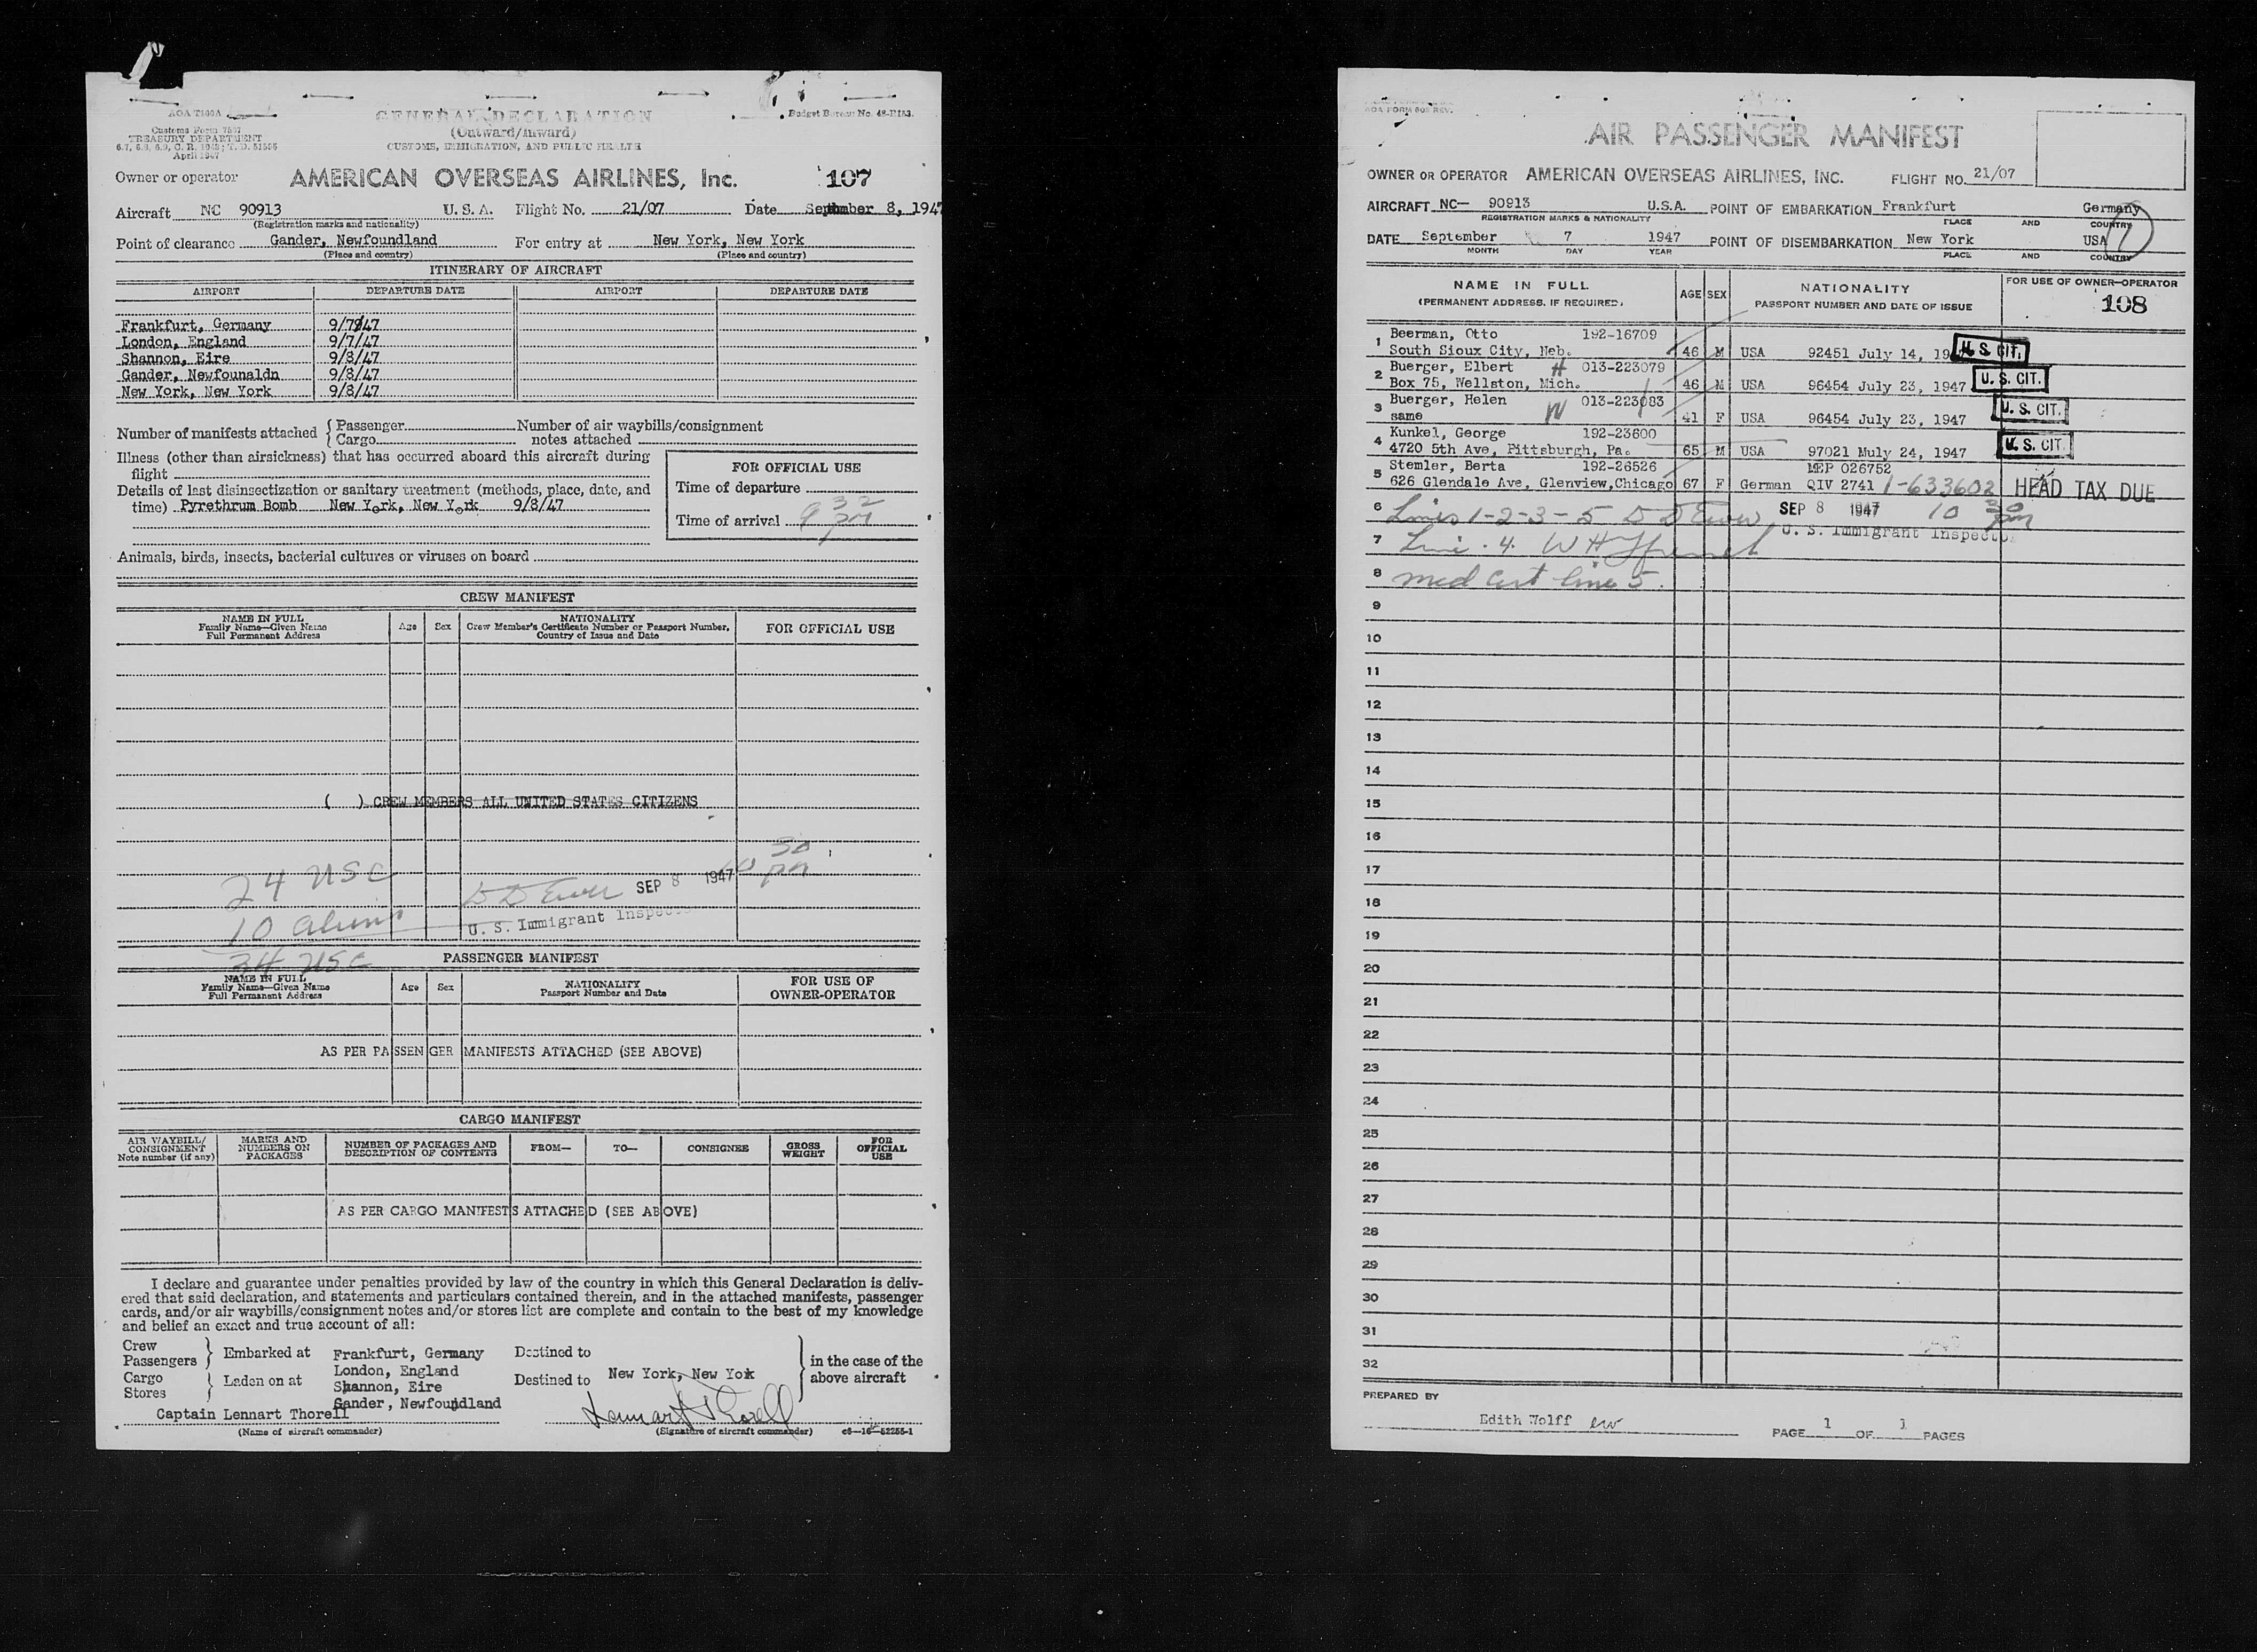 AOA T100A
Customs Form 7507
TREASURY DEPARTMENT
April 1947
GENERAL DECLARATION
(Outward/Inward)
CUSTOMS, IMMIGRATION, AND PUBLIC HEALTH
Budget Bureau No. 48-R183.
Owner or operator AMERICAN OVERSEAS AIRLINES, Inc. 107
Aircraft NC 90913 U. S. A. Flight No. 21/07 Date September 8, 1947
(Registration marks and nationality)
Point of clearance Gander, Newfoundland For entry at New York, New York
(Place and country) (Place and country)
ITINERARY OF AIRCRAFT
AIRPORT DEPARTURE DATE AIRPORT DEPARTURE DATE
Frankfurt, Germany 9/7/47
London, England 9/7/47
Shannon, Eire 9/8/47
Gander, Newfounaldn 9/8/47
New York, New York 9/8/47
Number of manifests attached { Passenger Number of air waybills/consignment
Cargo notes attached
Illness (other than airsickness) that has occurred aboard this aircraft during
flight
Details of last disinsectization or sanitary treatment (methods, place, date, and
time) Pyrethrum Bomb New York, New York 9/8/47
FOR OFFICIAL USE
Time of departure
Time of arrival 9 32 PM
Animals, birds, insects, bacterial cultures or viruses on board
CREW MANIFEST
NAME IN FULL
Family Name—Given Name
Full Permanent Address
Age Sex
NATIONALITY
Crew Member's Certificate Number or Passport Number,
Country of Issue and Date
FOR OFFICIAL USE
( ) CREW MEMBERS ALL UNITED STATES CITIZENS
24 USC
10 aliens
34 USC
D D Ewer SEP 8 1947 10 30 PM
U. S. Immigrant Inspector
PASSENGER MANIFEST
NAME IN FULL
Family Name—Given Name
Full Permanent Address
Age Sex
NATIONALITY
Passport Number and Date
FOR USE OF
OWNER-OPERATOR
AS PER PASSENGER MANIFESTS ATTACHED (SEE ABOVE)
CARGO MANIFEST
AIR WAYBILL/
CONSIGNMENT
Note number (if any)
MARKS AND
NUMBERS ON
PACKAGES
NUMBER OF PACKAGES AND
DESCRIPTION OF CONTENTS
FROM— TO— CONSIGNEE
GROSS
WEIGHT
FOR
OFFICIAL
USE
AS PER CARGO MANIFESTS ATTACHED (SEE ABOVE)
I declare and guarantee under penalties provided by law of the country in which this General Declaration is deliv-
ered that said declaration, and statements and particulars contained therein, and in the attached manifests, passenger
cards, and/or air waybills/consignment notes and/or stores list are complete and contain to the best of my knowledge
and belief an exact and true account of all:
Crew
Passengers } Embarked at Frankfurt, Germany Destined to
London, England
Cargo
Stores } Laden on at Shannon, Eire Destined to New York, New Yok } in the case of the
above aircraft
Gander, Newfoundland
Captain Lennart Thorell Lennart Thorell
(Name of aircraft commander) (Signature of aircraft commander) c6—16—52255-1
AOA FORM 602 REV.
AIR PASSENGER MANIFEST
OWNER OR OPERATOR AMERICAN OVERSEAS AIRLINES, INC. FLIGHT NO. 21/07
AIRCRAFT NC— 90913 U.S.A. POINT OF EMBARKATION Frankfurt Germany
REGISTRATION MARKS & NATIONALITY PLACE AND COUNTRY
DATE September 7 1947 POINT OF DISEMBARKATION New York USA
MONTH DAY YEAR PLACE AND COUNTRY
NAME IN FULL
(PERMANENT ADDRESS, IF REQUIRED)
AGE SEX
NATIONALITY
PASSPORT NUMBER AND DATE OF ISSUE
FOR USE OF OWNER—OPERATOR
108
1 Beerman, Otto 192-16709
South Sioux City, Neb. 46 M USA 92451 July 14, 19 U. S. CIT.
2 Buerger, Elbert H 013-223079
Box 75, Wellston, Mich. 46 M USA 96454 July 23, 1947 U. S. CIT.
3 Buerger, Helen W 013-223083
same 41 F USA 96454 July 23, 1947 U. S. CIT.
4 Kunkel, George 192-23600
4720 5th Ave, Pittsburgh, Pa. 65 M USA 97021 Muly 24, 1947 U. S. CIT.
5 Stemler, Berta 192-26526 MEP 026752
626 Glendale Ave, Glenview,Chicago 67 F German QIV 2741 1-633602 HEAD TAX DUE
6 Lines 1-2-3-5 D D Ewer SEP 8 1947 10 30 PM
U. S. Immigrant Inspector
7 Line . 4. W H
8 Med Cert line 5.
9
10
11
12
13
14
15
16
17
18
19
20
21
22
23
24
25
26
27
28
29
30
31
32
PREPARED BY
Edith Wolff ew
PAGE 1 OF 1 PAGES